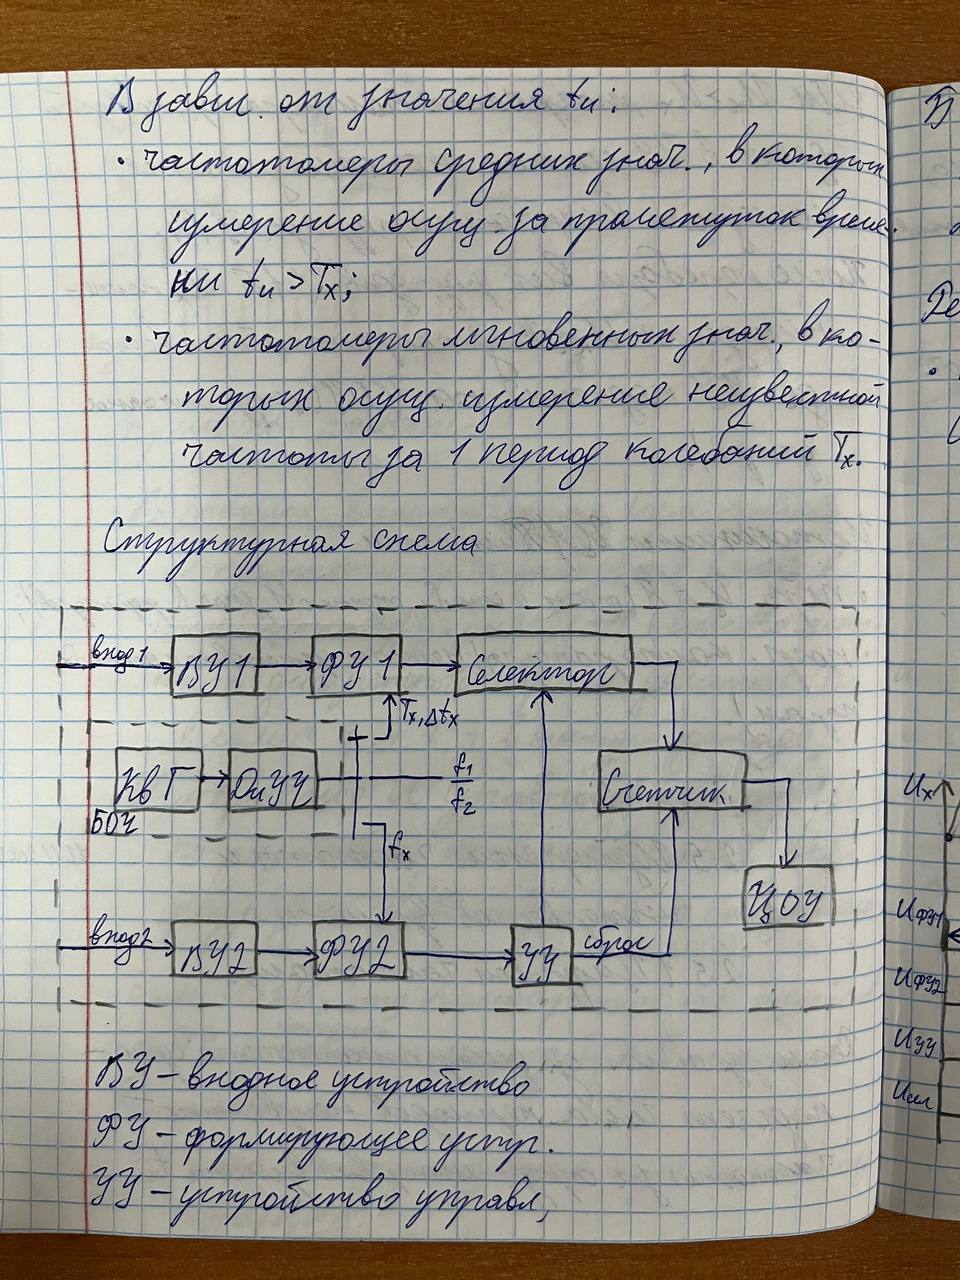 В завис. от значения tи:
• частотомеры средних знач., в которых
измерение осущ. за промежуток време-
ни tи > Tx;
• частотомеры мгновенных знач., в ко-
торых осущ. измерение неизвестной
частоты за 1 период колебаний Tx.
Структурная схема
вход1
ВУ1
ФУ1
Селектор
Tx, Δtx
КвГ
ДиУЧ
f1
f2
Счетчик
БОЧ
fx
ЦОУ
вход2
ВУ2
ФУ2
УУ
сброс
ВУ – входное устройство
ФУ – формирующее устр.
УУ – устройство управл,
Ux
UФУ1
UФУ2
UУУ